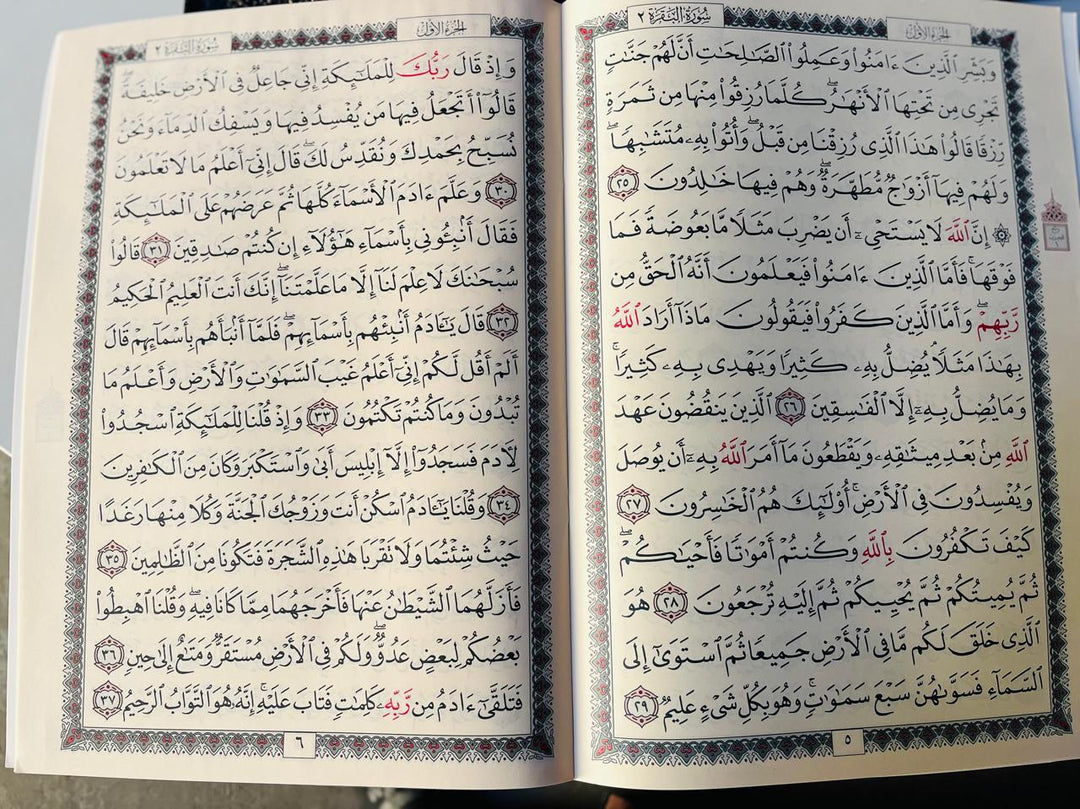 سُورَةُ البَقَرَةِ ٢
الجزء الأول
وَبَشِّرِ ٱلَّذِينَ ءَامَنُوا۟ وَعَمِلُوا۟ ٱلصَّـٰلِحَـٰتِ أَنَّ لَهُمْ جَنَّـٰتٍ
تَجْرِى مِن تَحْتِهَا ٱلْأَنْهَـٰرُ ۖ كُلَّمَا رُزِقُوا۟ مِنْهَا مِن ثَمَرَةٍ
رِّزْقًا قَالُوا۟ هَـٰذَا ٱلَّذِى رُزِقْنَا مِن قَبْلُ ۖ وَأُتُوا۟ بِهِۦ مُتَشَـٰبِهًا ۖ
وَلَهُمْ فِيهَآ أَزْوَٰجٌ مُّطَهَّرَةٌ ۖ وَهُمْ فِيهَا خَـٰلِدُونَ ٢٥
۞ إِنَّ ٱللَّهَ لَا يَسْتَحْىِۦٓ أَن يَضْرِبَ مَثَلًا مَّا بَعُوضَةً فَمَا
فَوْقَهَا ۚ فَأَمَّا ٱلَّذِينَ ءَامَنُوا۟ فَيَعْلَمُونَ أَنَّهُ ٱلْحَقُّ مِن
رَّبِّهِمْ ۖ وَأَمَّا ٱلَّذِينَ كَفَرُوا۟ فَيَقُولُونَ مَاذَآ أَرَادَ ٱللَّهُ
بِهَـٰذَا مَثَلًا ۘ يُضِلُّ بِهِۦ كَثِيرًا وَيَهْدِى بِهِۦ كَثِيرًا ۚ
وَمَا يُضِلُّ بِهِۦٓ إِلَّا ٱلْفَـٰسِقِينَ ٢٦ ٱلَّذِينَ يَنقُضُونَ عَهْدَ
ٱللَّهِ مِنۢ بَعْدِ مِيثَـٰقِهِۦ وَيَقْطَعُونَ مَآ أَمَرَ ٱللَّهُ بِهِۦٓ أَن يُوصَلَ
وَيُفْسِدُونَ فِى ٱلْأَرْضِ ۚ أُو۟لَـٰٓئِكَ هُمُ ٱلْخَـٰسِرُونَ ٢٧
كَيْفَ تَكْفُرُونَ بِٱللَّهِ وَكُنتُمْ أَمْوَٰتًا فَأَحْيَـٰكُمْ ۖ
ثُمَّ يُمِيتُكُمْ ثُمَّ يُحْيِيكُمْ ثُمَّ إِلَيْهِ تُرْجَعُونَ ٢٨ هُوَ
ٱلَّذِى خَلَقَ لَكُم مَّا فِى ٱلْأَرْضِ جَمِيعًا ثُمَّ ٱسْتَوَىٰٓ إِلَى
ٱلسَّمَآءِ فَسَوَّىٰهُنَّ سَبْعَ سَمَـٰوَٰتٍ ۚ وَهُوَ بِكُلِّ شَىْءٍ عَلِيمٌ ٢٩
٥
الجزء الأول
سُورَةُ البَقَرَةِ ٢
وَإِذْ قَالَ رَبُّكَ لِلْمَلَـٰٓئِكَةِ إِنِّى جَاعِلٌ فِى ٱلْأَرْضِ خَلِيفَةً ۖ
قَالُوٓا۟ أَتَجْعَلُ فِيهَا مَن يُفْسِدُ فِيهَا وَيَسْفِكُ ٱلدِّمَآءَ وَنَحْنُ
نُسَبِّحُ بِحَمْدِكَ وَنُقَدِّسُ لَكَ ۖ قَالَ إِنِّىٓ أَعْلَمُ مَا لَا تَعْلَمُونَ
٣٠ وَعَلَّمَ ءَادَمَ ٱلْأَسْمَآءَ كُلَّهَا ثُمَّ عَرَضَهُمْ عَلَى ٱلْمَلَـٰٓئِكَةِ
فَقَالَ أَنۢبِـُٔونِى بِأَسْمَآءِ هَـٰٓؤُلَآءِ إِن كُنتُمْ صَـٰدِقِينَ ٣١ قَالُوا۟
سُبْحَـٰنَكَ لَا عِلْمَ لَنَآ إِلَّا مَا عَلَّمْتَنَآ ۖ إِنَّكَ أَنتَ ٱلْعَلِيمُ ٱلْحَكِيمُ
٣٢ قَالَ يَـٰٓـَٔادَمُ أَنۢبِئْهُم بِأَسْمَآئِهِمْ ۖ فَلَمَّآ أَنۢبَأَهُم بِأَسْمَآئِهِمْ قَالَ
أَلَمْ أَقُل لَّكُمْ إِنِّىٓ أَعْلَمُ غَيْبَ ٱلسَّمَـٰوَٰتِ وَٱلْأَرْضِ وَأَعْلَمُ مَا
تُبْدُونَ وَمَا كُنتُمْ تَكْتُمُونَ ٣٣ وَإِذْ قُلْنَا لِلْمَلَـٰٓئِكَةِ ٱسْجُدُوا۟
لِـَٔادَمَ فَسَجَدُوٓا۟ إِلَّآ إِبْلِيسَ أَبَىٰ وَٱسْتَكْبَرَ وَكَانَ مِنَ ٱلْكَـٰفِرِينَ
٣٤ وَقُلْنَا يَـٰٓـَٔادَمُ ٱسْكُنْ أَنتَ وَزَوْجُكَ ٱلْجَنَّةَ وَكُلَا مِنْهَا رَغَدًا
حَيْثُ شِئْتُمَا وَلَا تَقْرَبَا هَـٰذِهِ ٱلشَّجَرَةَ فَتَكُونَا مِنَ ٱلظَّـٰلِمِينَ ٣٥
فَأَزَلَّهُمَا ٱلشَّيْطَـٰنُ عَنْهَا فَأَخْرَجَهُمَا مِمَّا كَانَا فِيهِ ۖ وَقُلْنَا ٱهْبِطُوا۟
بَعْضُكُمْ لِبَعْضٍ عَدُوٌّ ۖ وَلَكُمْ فِى ٱلْأَرْضِ مُسْتَقَرٌّ وَمَتَـٰعٌ إِلَىٰ حِينٍ ٣٦
فَتَلَقَّىٰٓ ءَادَمُ مِن رَّبِّهِۦ كَلِمَـٰتٍ فَتَابَ عَلَيْهِ ۚ إِنَّهُۥ هُوَ ٱلتَّوَّابُ ٱلرَّحِيمُ ٣٧
٦